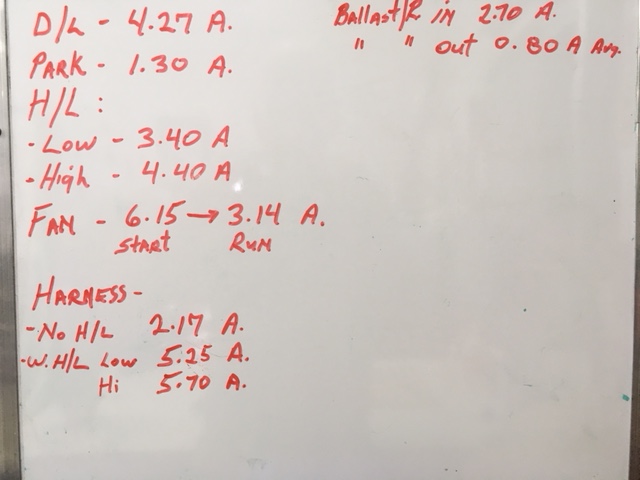 D/L - 4.27 A.
PARK - 1.30 A.
H/L :
- Low - 3.40 A
- High - 4.40 A
FAN - 6.15 → 3.14 A.
START RUN
HARNESS -
- No H/L 2.17 A.
- W. H/L Low 5.25 A.
Hi 5.70 A.
Ballast/R in 2.70 A.
" " out 0.80 A Avg.